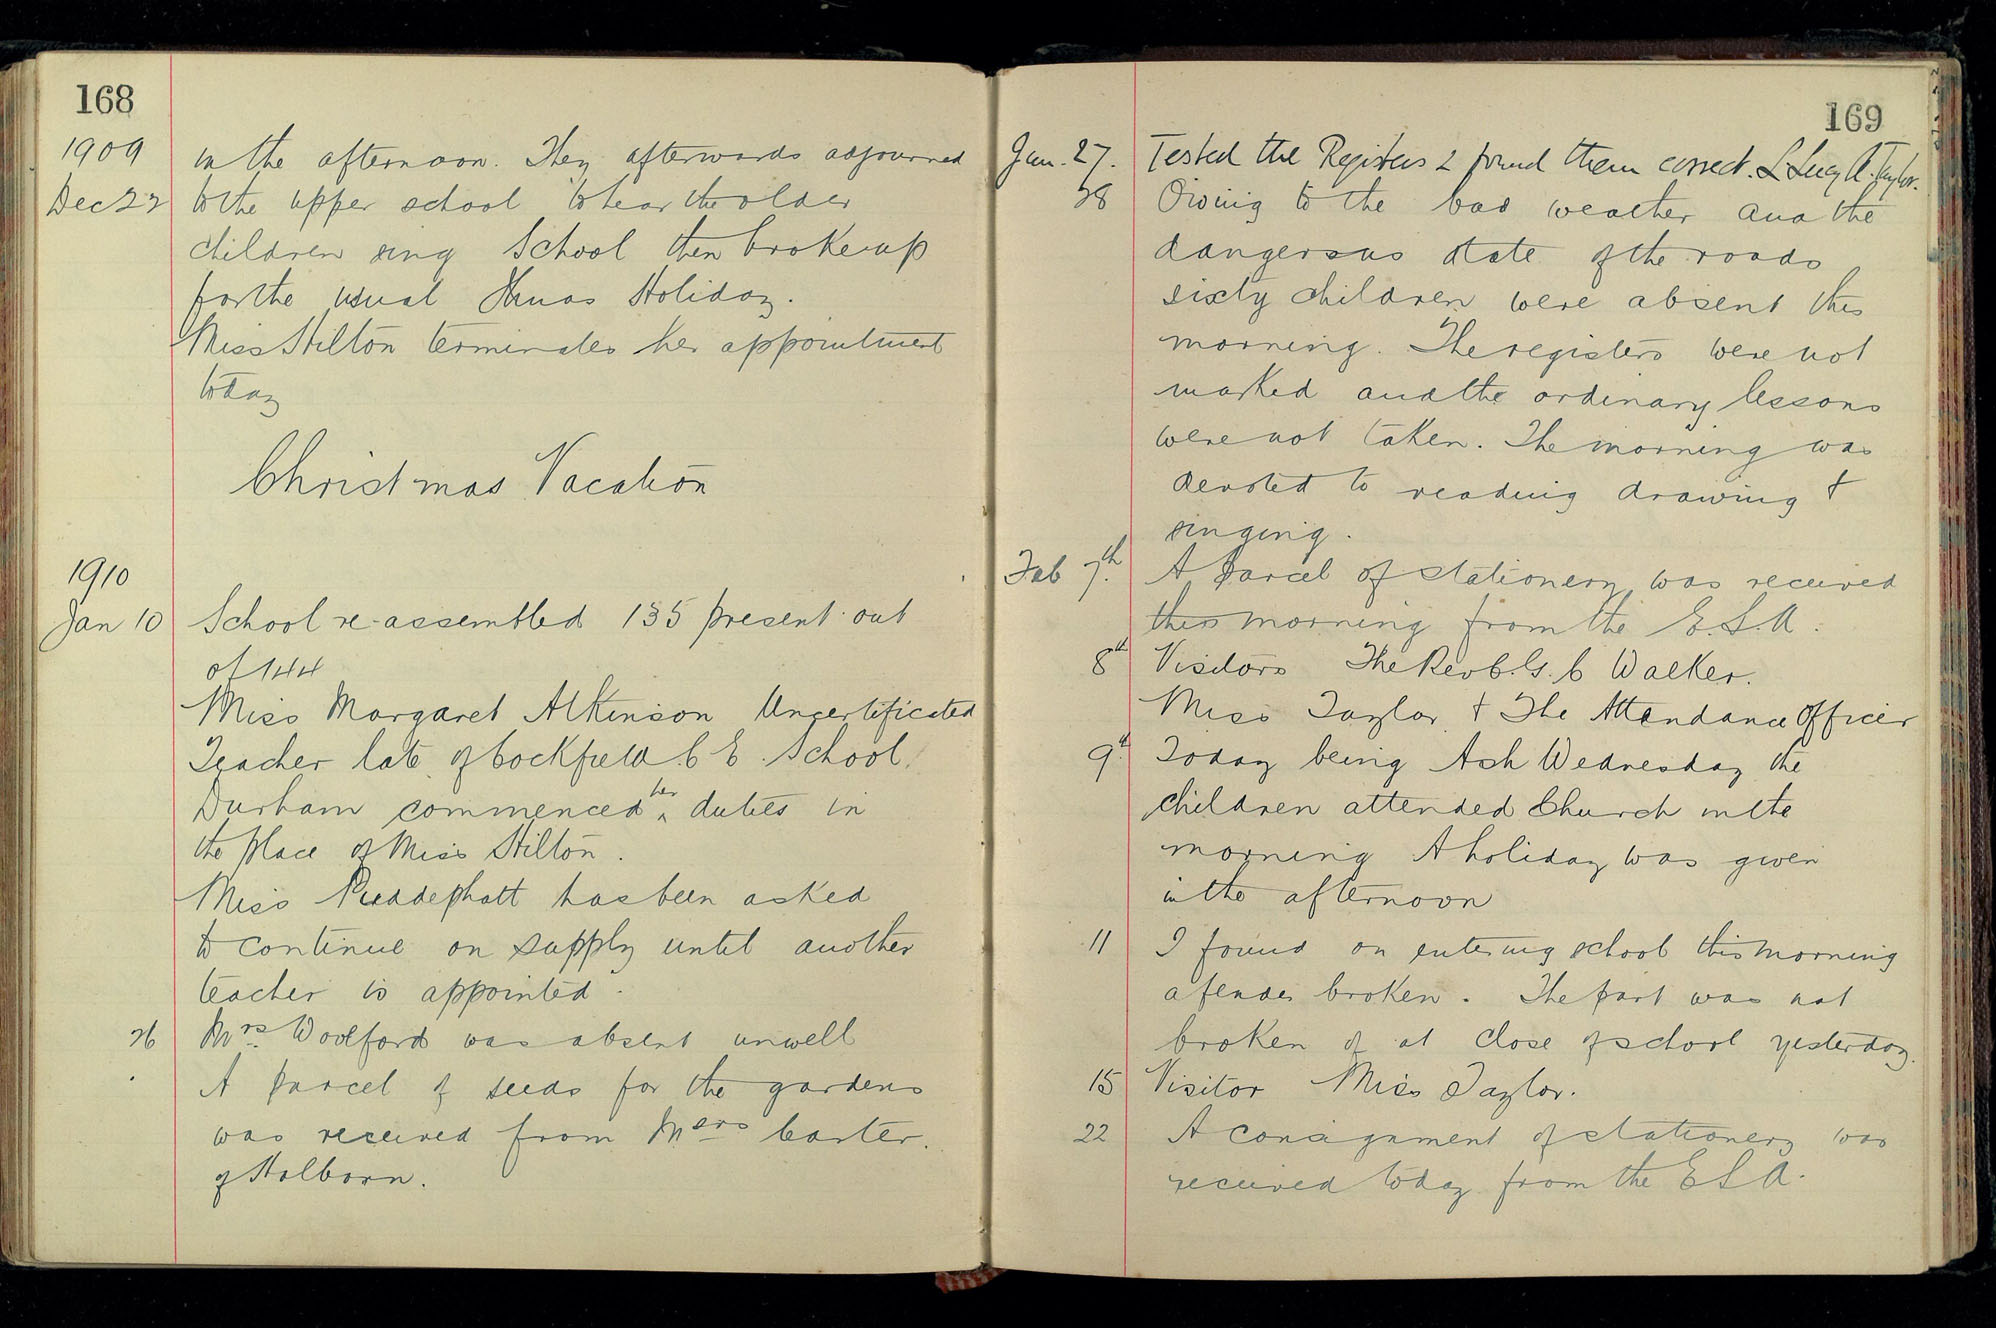 168
1909
in the afternoon. They afterwards adjourned
Dec 22 to the upper school to hear the older
children sing School then broke up
for the usual Xmas Holiday.
Miss Hilton terminates her appointment
today
Christmas Vacation
1910
Jan 10 School re-assembled 135 present out
of 144
Miss Margaret Atkinson Uncertificated
Teacher late of Cockfield C E. School
Durham commenced her duties in
the place of Miss Hilton.
Miss Puddephatt has been asked
to continue on supply until another
teacher is appointed.
26 Mrs. Woolford was absent unwell
A parcel of seeds for the gardens
was received from Messrs Carter.
of Holborn.
169
Jan. 27. Tested the Registers & found them correct. Lucy A. Taylor.
28 Owing to the bad weather and the
dangerous state of the roads
sixty children were absent this
morning. The registers were not
marked and the ordinary lessons
were not taken. The morning was
devoted to reading drawing &
singing.
Feb 7th. A parcel of stationery was received
this morning from the E.S.A.
8th Visitors The Rev C. G. C Walker.
Miss Taylor & The Attendance Officer
9th Today being Ash Wednesday the
children attended Church in the
morning A holiday was given
in the afternoon
11 I found on entering school this morning
a fender broken. The part was not
broken of at close of school yesterday.
15 Visitor Miss Taylor.
22 A consignment of stationery was
received today from the E S A.